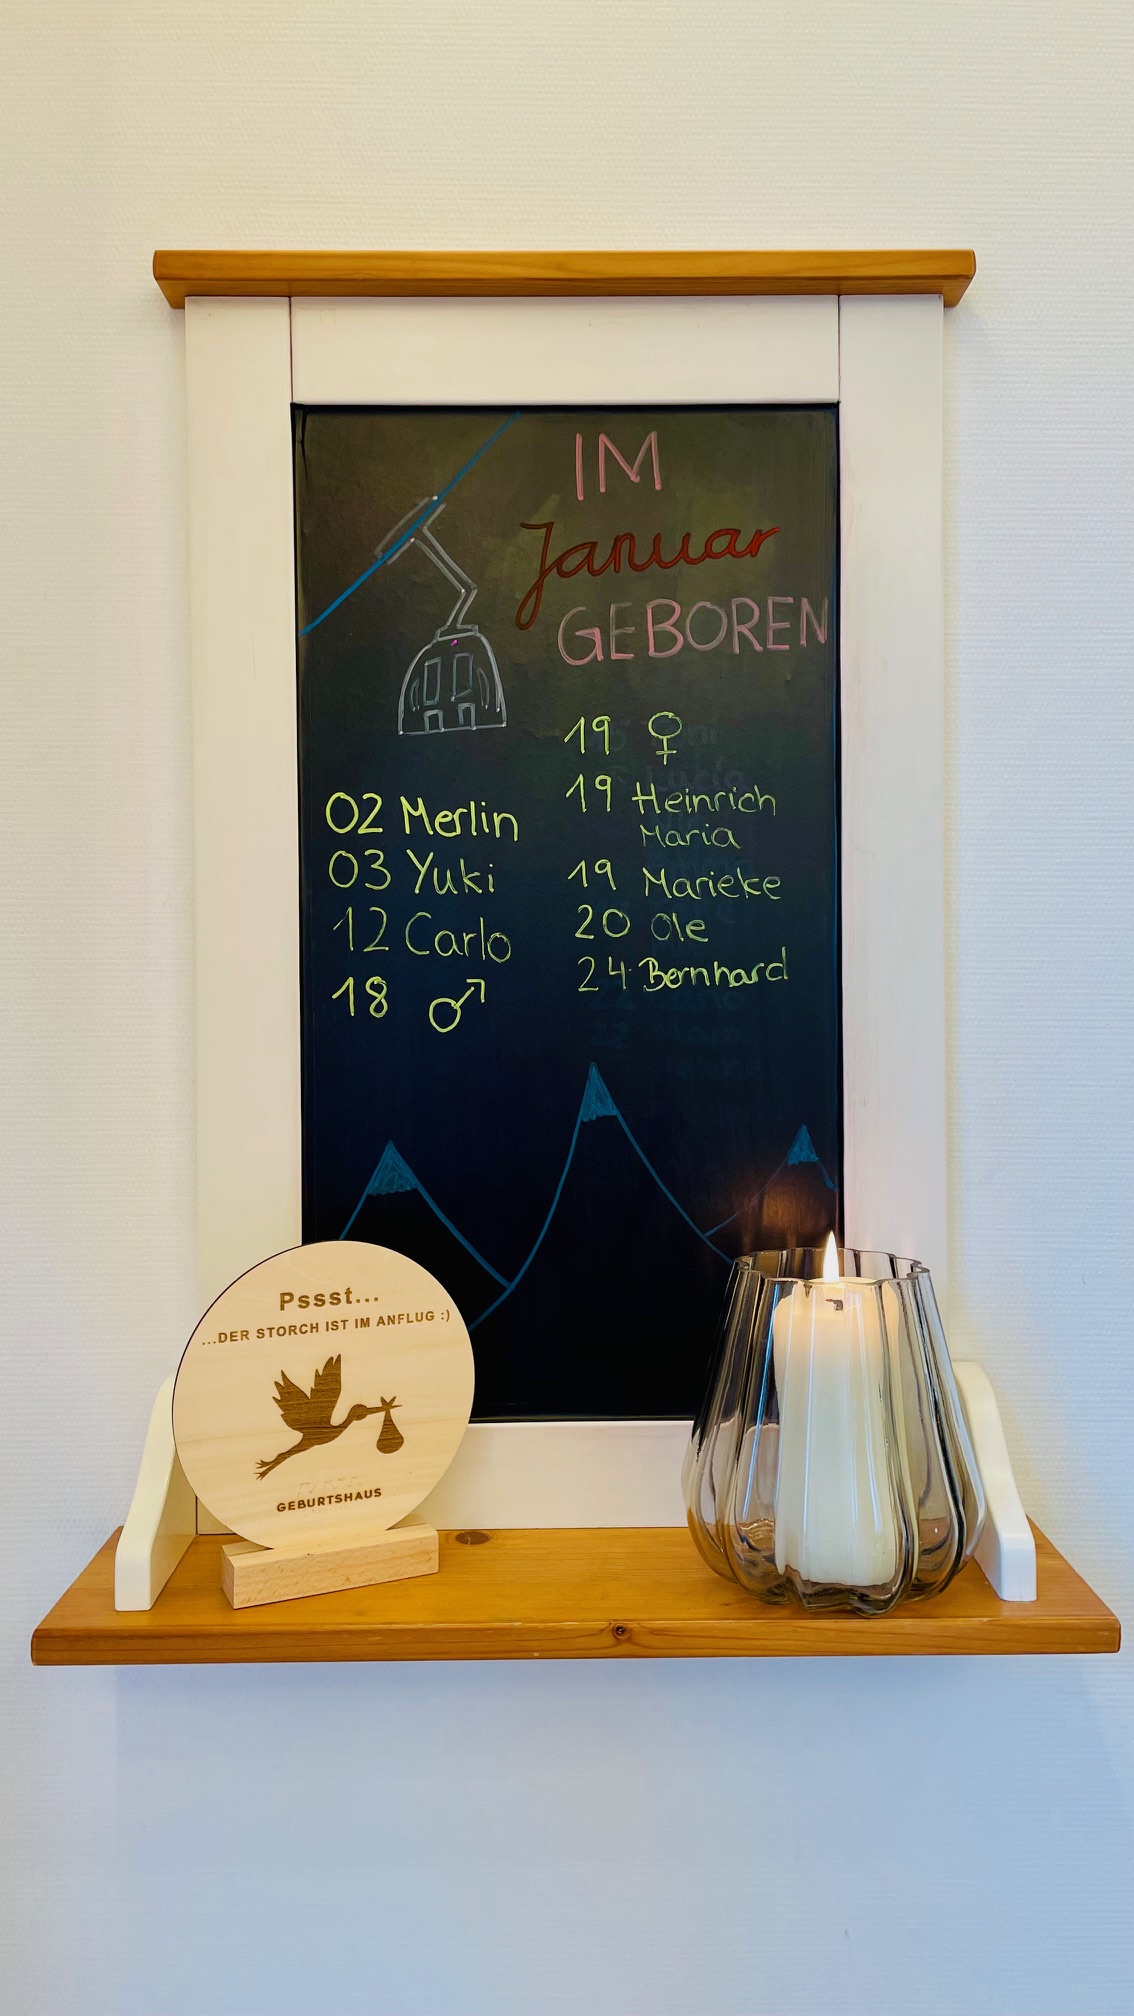 IM
Januar
GEBOREN
02 Merlin
03 Yuki
12 Carlo
18 ♂
19 ♀
19 Heinrich
Maria
19 Marieke
20 Ole
24 Bernhard
Pssst...
...DER STORCH IST IM ANFLUG :)
GEBURTSHAUS